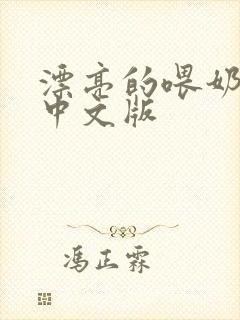 漂亮的喂奶
中文版
冯正霖